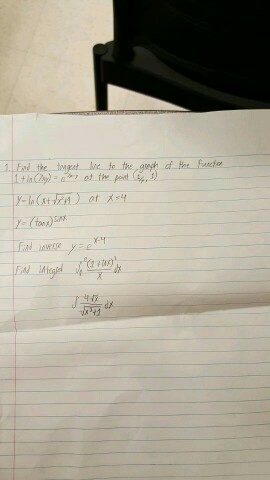 Find the tangent line to the graph of the function
1 + ln(7xy) = e^ at the point
y = ln(x + √x²+9) at x = 4
y = (tanx)^sinx
Find inverse y = e^x-4
Find integral ∫ (1 + lnx)² / x dx
∫ 4+x / √x²+9 dx